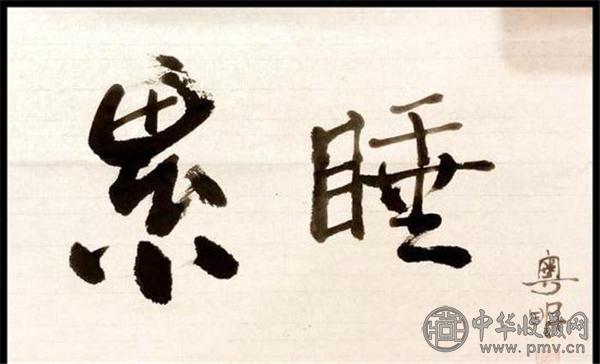 累睡
粤明
中华收藏网
www.pmv.cn